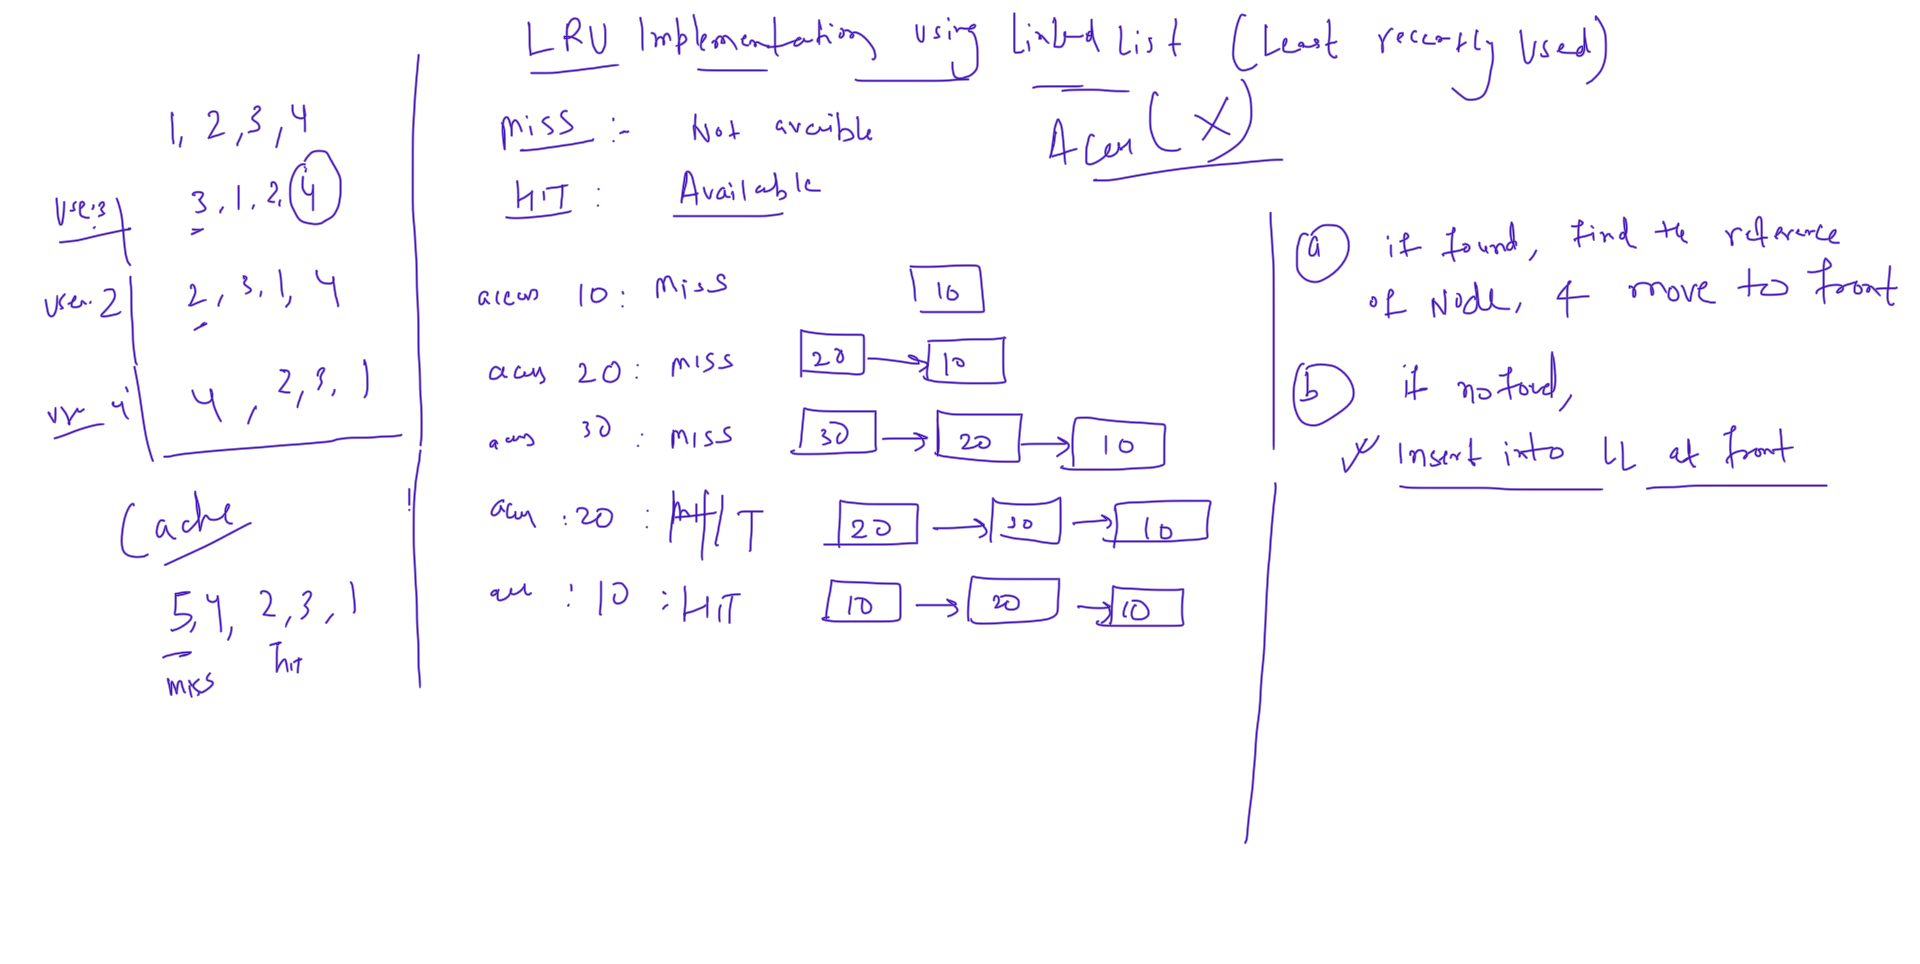 LRU Implementation using Linked List (Least recently Used)
1, 2, 3, 4
Use: 3 3, 1, 2, 4
User: 2 2, 3, 1, 4
4, 2, 3, 1
Cache
5, 4, 2, 3, 1
miss hit
Miss :- Not avaible
HIT : Available
(X)
access 10 : Miss 10
20 : MISS 20 → 10
30 : MISS 30 → 20 → 10
: 20 : HIT 20 → 30 → 10
: 10 : HIT 10 → 20 → 10
a if found, find the reference
of Node, & move to front
b if no foud,
✓ Insert into LL at front